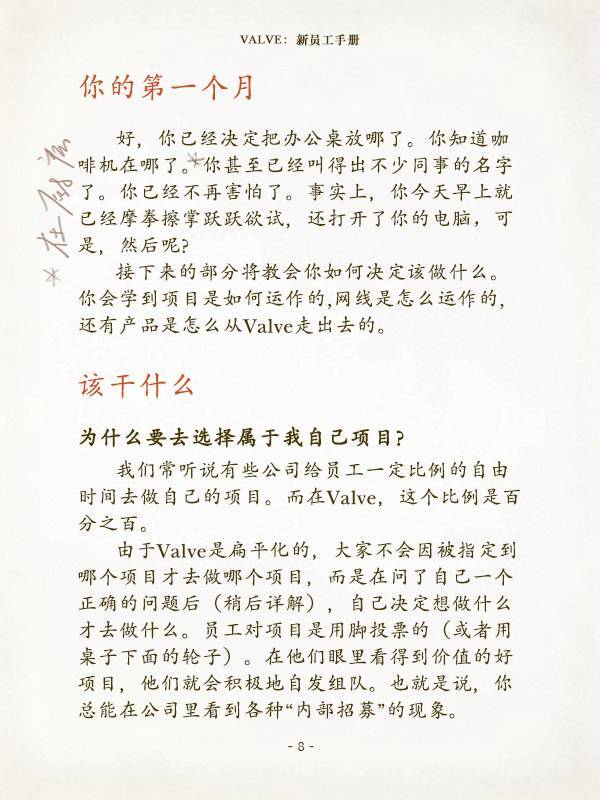 VALVE: 新员工手册
你的第一个月
好，你已经决定把办公桌放哪了。你知道咖
啡机在哪了。*你甚至已经叫得出不少同事的名字
了。你已经不再害怕了。事实上，你今天早上就
已经摩拳擦掌跃跃欲试，还打开了你的电脑，可
是，然后呢？
接下来的部分将教会你如何决定该做什么。
你会学到项目是如何运作的,网线是怎么运作的，
还有产品是怎么从Valve走出去的。
该干什么
为什么要去选择属于我自己项目？
我们常听说有些公司给员工一定比例的自由
时间去做自己的项目。而在Valve，这个比例是百
分之百。
由于Valve是扁平化的，大家不会因被指定到
哪个项目才去做哪个项目，而是在问了自己一个
正确的问题后（稍后详解），自己决定想做什么
才去做什么。员工对项目是用脚投票的（或者用
桌子下面的轮子）。在他们眼里看得到价值的好
项目，他们就会积极地自发组队。也就是说，你
总能在公司里看到各种“内部招募”的现象。
- 8 -